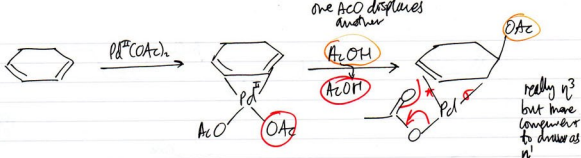 one AcO displaces
another
OAc
Pd^II(OAc)2
AcOH
AcOH
Pd^II
AcO
OAc
O
Pd
O
really η³
but more
convenient
to draw as
η¹